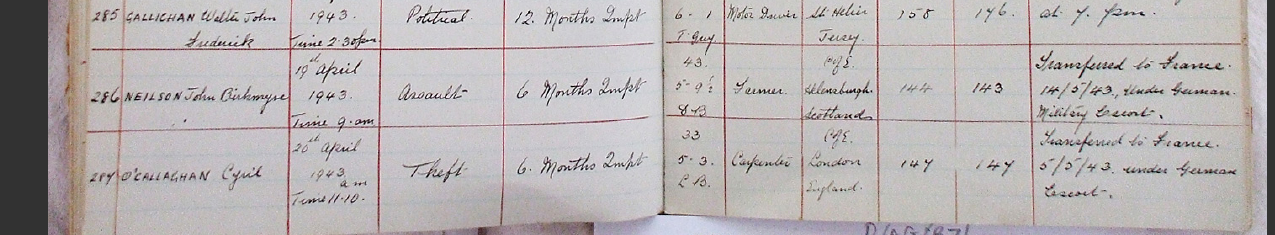 285 GALLICHAN Walter John 1943. Political 12. Months Impt 6 - 1 Motor Driver St. Helier 158 176. at 7. pm.
Frederick Time 2.30pm Jersey.
19th April 43. C of E. Transferred to France.
286 NEILSON John Birkmyre 1943. Assault 6 Months Impt 5-9½ Farmer. Helensburgh 144 143 14/5/43, under German
Time 9. am Scotland Military Escort.
20th April 33 C of E. Transferred to France.
287 O'CALLAGHAN Cyril 1943 Theft 6. Months Impt 5-3. Carpenter London 147 147 5/5/43. under German
am England. Escort.
Time 11-10.